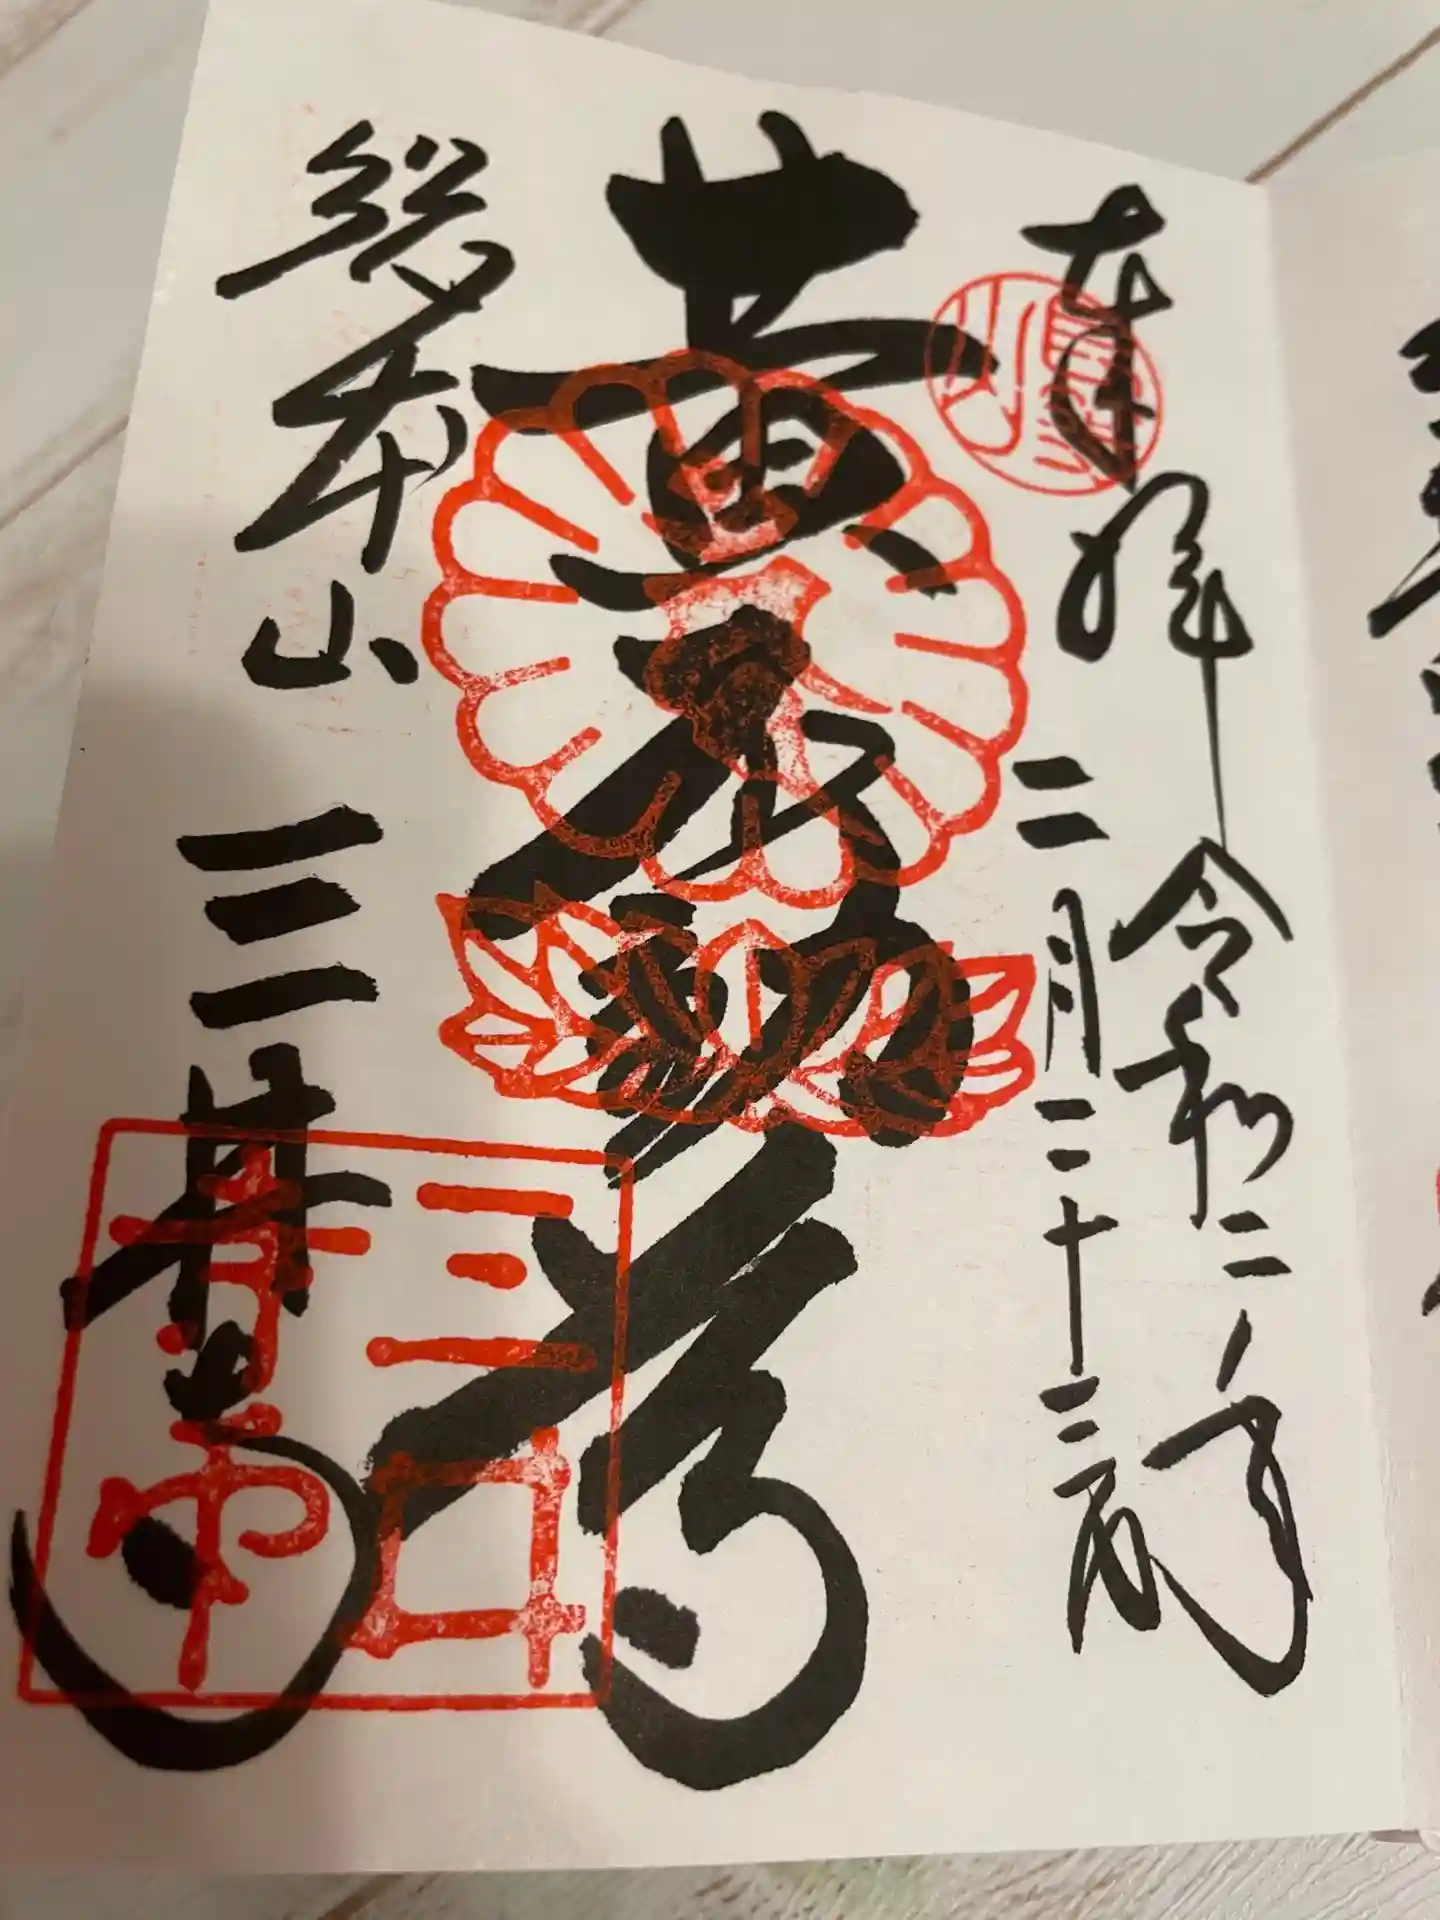 奉拝
令和二年
二月二十三日
黄不動尊
総本山
三井寺
三井寺印